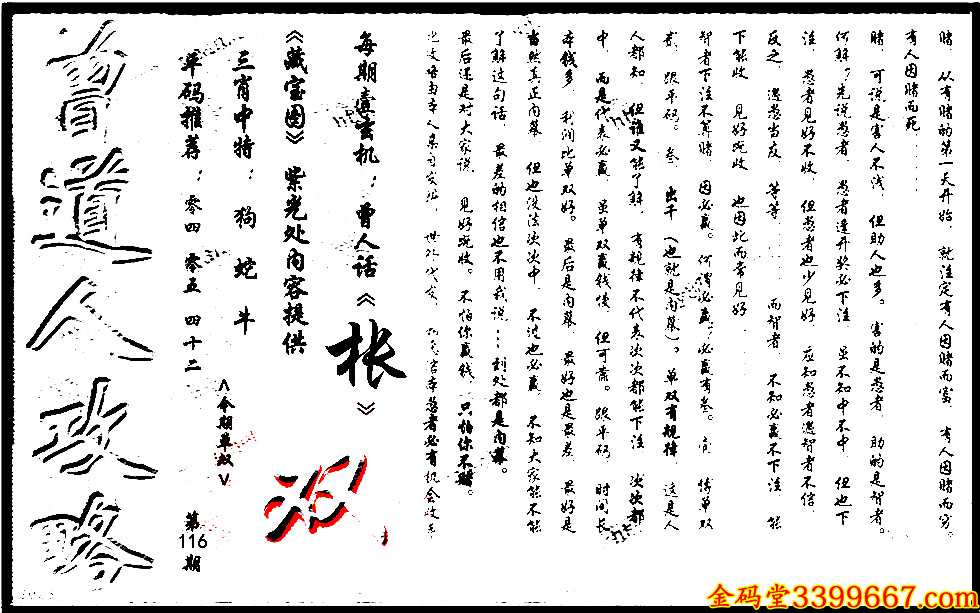 赌、从有赌的第一天开始、就注定有人因赌而富、有人因赌而穷。
有人因赌而死……
赌、可说是害人不浅、但助人也多。害的是愚者、助的是智者。
何解？先说愚者、愚者逢开奖必下注、虽不知中不中、但也下
注、愚者见好不收、但愚者也少见好、应知愚者遇智者不信、
反之、遇愚当友、等等、而智者、不知必赢不下注、能
下能收、见好就收、也因此而常见好、
智者下注不算赌、因必赢。何谓必赢？必赢有叁。壹、猜单双
贰、跟平码。叁、出千（也就是内幕）。单双有规律、这是人
人都知、但谁又能了解、有规律不代表次次都能下注、次次都
中、而是代表必赢、虽单双赢钱慢、但可靠。跟平码、时间长
本钱多、利润比单双好。最后是内幕、最好也是最差、最好是
当然真正内幕、但也没法次次中、不过也必赢、不知大家能不能
了解这句话、最差的相信也不用我说……到处都是内幕。
最后还是对大家说、见好就收。不怕你赢钱、只怕你不赌。
每期壹玄机：曾人话《枨》
《藏宝图》紫光处内容提供
三肖中特：狗 蛇 牛
单码推荐：零四 零五 四十二
<今期单双>
第116期
曾道人攻略
金码堂3399667.com